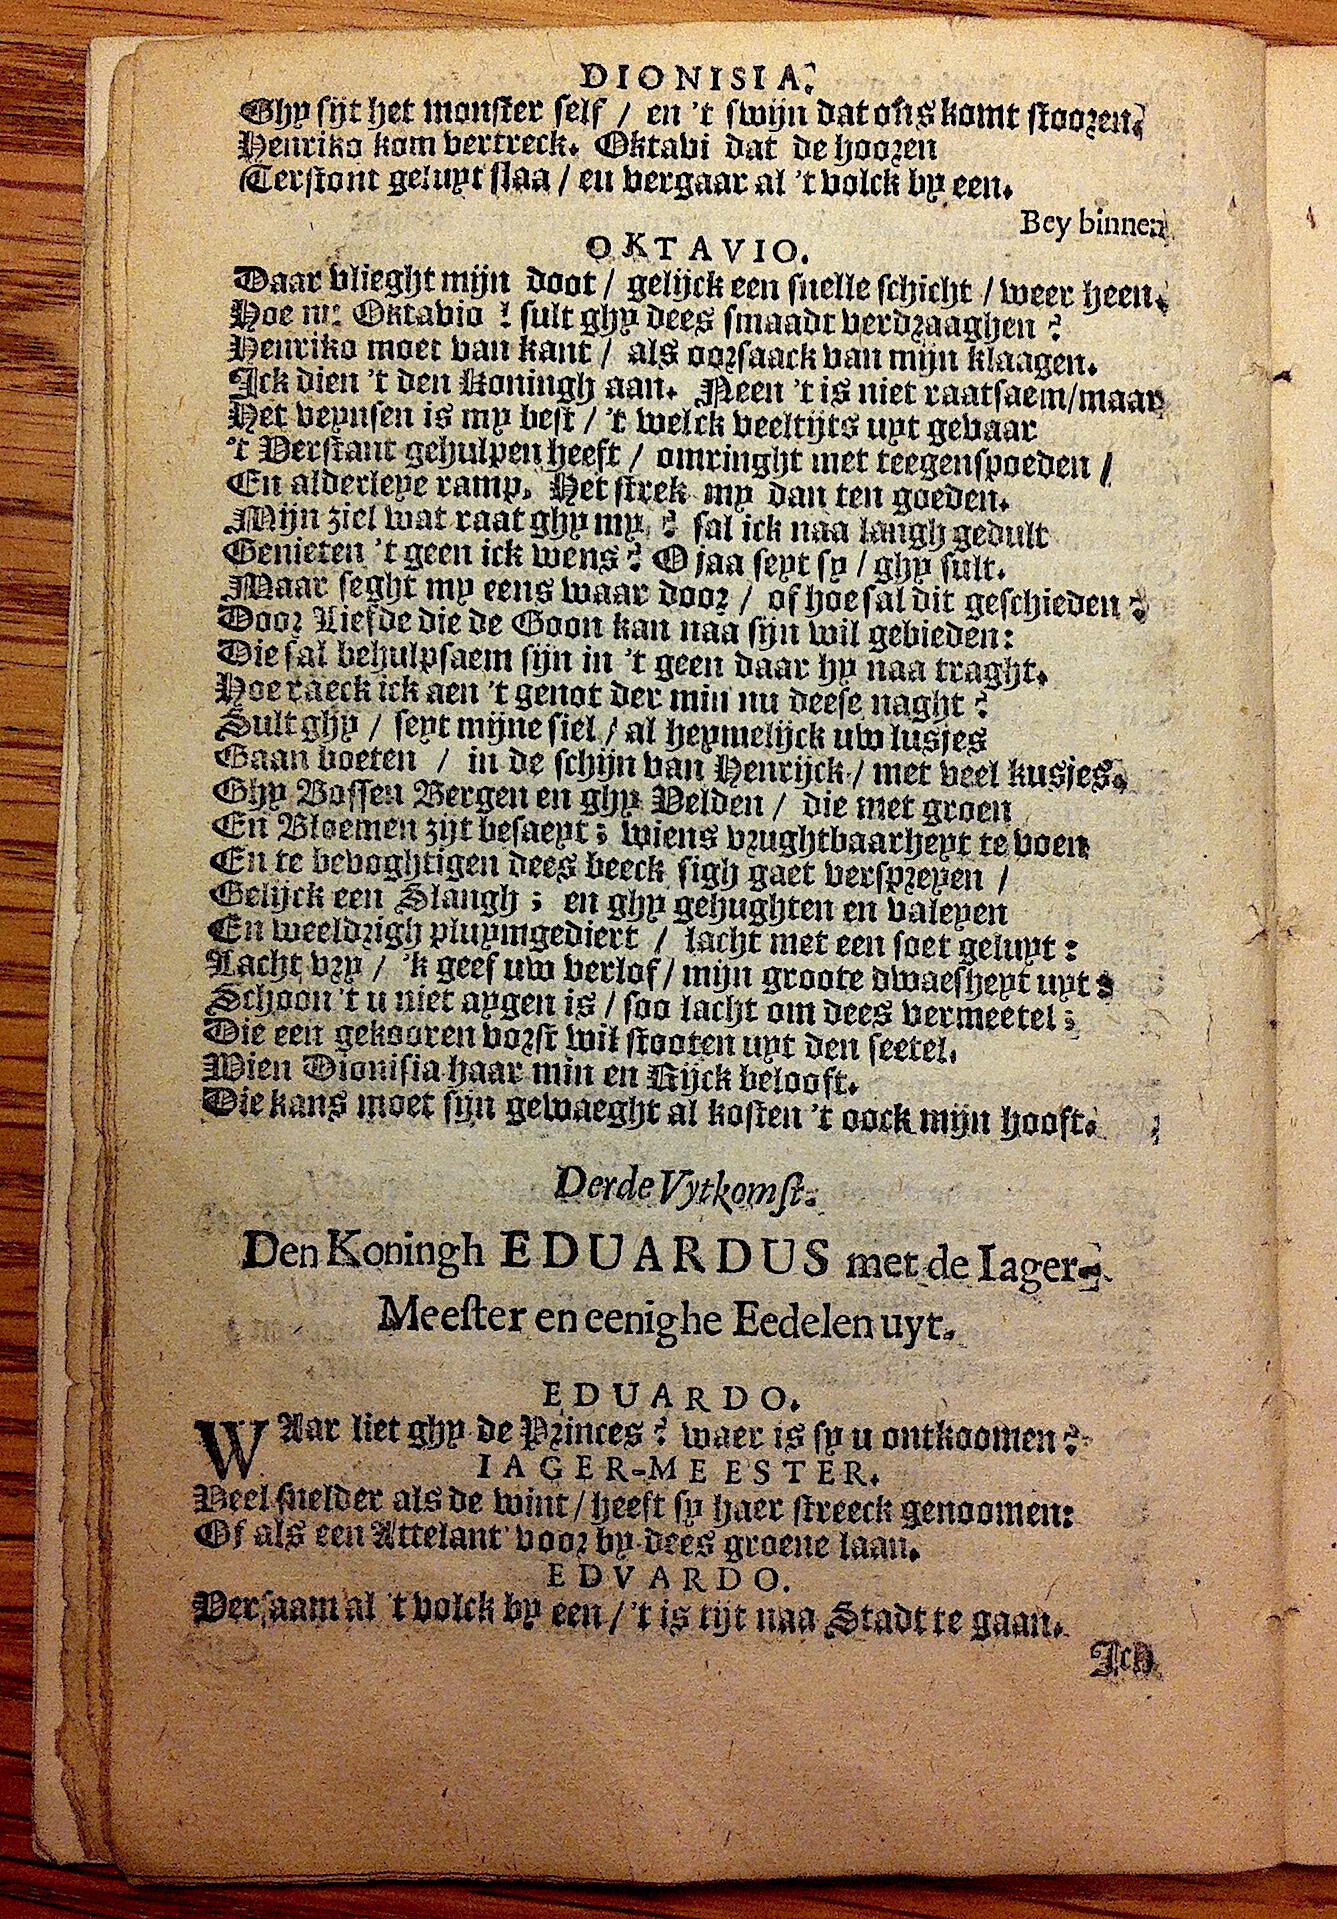 DIONISIA.
Ghy sijt het monster self / en 't swijn dat ons komt stooren.
Henriko kom vertreck. Oktavi dat de hooren
Terstont geluyt slaa / en vergaar al 't volck by een.
Bey binnen
OKTAVIO.
Daar vlieght mijn doot / gelijck een snelle schicht / weer heen.
Hoe nu Oktavio ! sult ghy dees smaadt verdraaghen ?
Henriko moet van kant / als oorsaack van mijn klaagen.
Ick dien 't den Koningh aan. Neen 't is niet raatsaem/maar
Het veynsen is my best / 't welck veeltijts uyt gevaar
't Verstant gehulpen heeft / omringht met teegenspoeden /
En alderleye ramp. Het strek my dan ten goeden.
Mijn ziel wat raat ghy my ? sal ick naa langh gedult
Genieten 't geen ick wens ? O jaa seyt sy / ghy sult.
Maar seght my eens waar door / of hoe sal dit geschieden ?
Door Liefde die de Goon kan naa sijn wil gebieden:
Die sal behulpsaem sijn in 't geen daar hy naa traght.
Hoe raeck ick aen 't genot der min nu deese naght ?
Sult ghy / seyt mijne siel / al heymelijck uw lusjes
Gaan boeten / in de schijn van Henrijck / met veel kusjes.
Ghy Bossen Bergen en ghy Velden / die met groen
En Bloemen zijt besaeyt ; wiens vrughtbaarheyt te voen
En te bevoghtigen dees beeck sigh gaet verspreyen /
Gelijck een Slangh ; en ghy gehughten en valeyen
En weeldrigh pluymgediert / lacht met een soet geluyt :
Lacht vry / 'k geef uw verlof / mijn groote dwaesheyt uyt ;
Schoon 't u niet aygen is / soo lacht om dees vermeetel ;
Die een gekooren vorst wil stooten uyt den seetel.
Wien Dionisia haar min en Rijck belooft.
Die kans moet sijn gewaeght al kosten 't oock mijn hooft.
Derde Vytkomst.
Den Koningh EDUARDUS met de Iager-
Meester en eenighe Eedelen uyt.
EDUARDO.
WAar liet ghy de Princes ? waer is sy u ontkoomen ?
IAGER-MEESTER.
Veel snelder als de wint / heeft sy haer streeck genoomen:
Of als een Attelant voor by dees groene laan.
EDVARDO.
Versaam al 't volck by een / 't is tijt naa Stadt te gaan.
Ick